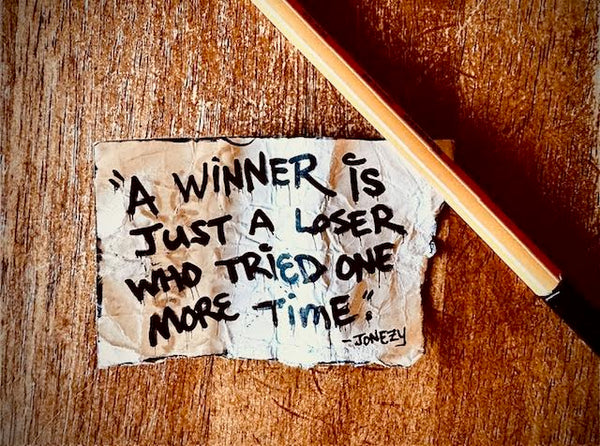 "A WiNNER iS
JUST A LOSER
WHO TRiED ONE
MORE TiME."
-JONEZY